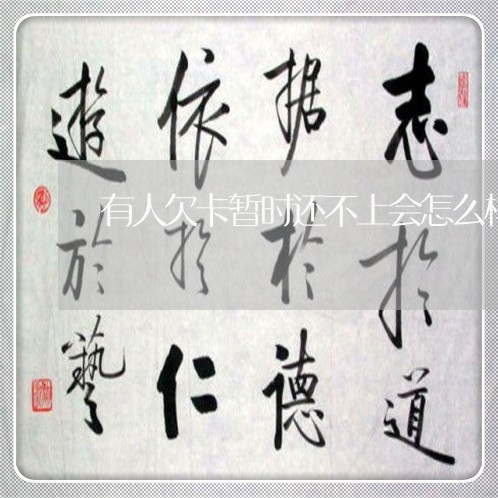 志於道
据於德
依於仁
遊於藝
有人欠卡暂时还不上会怎么